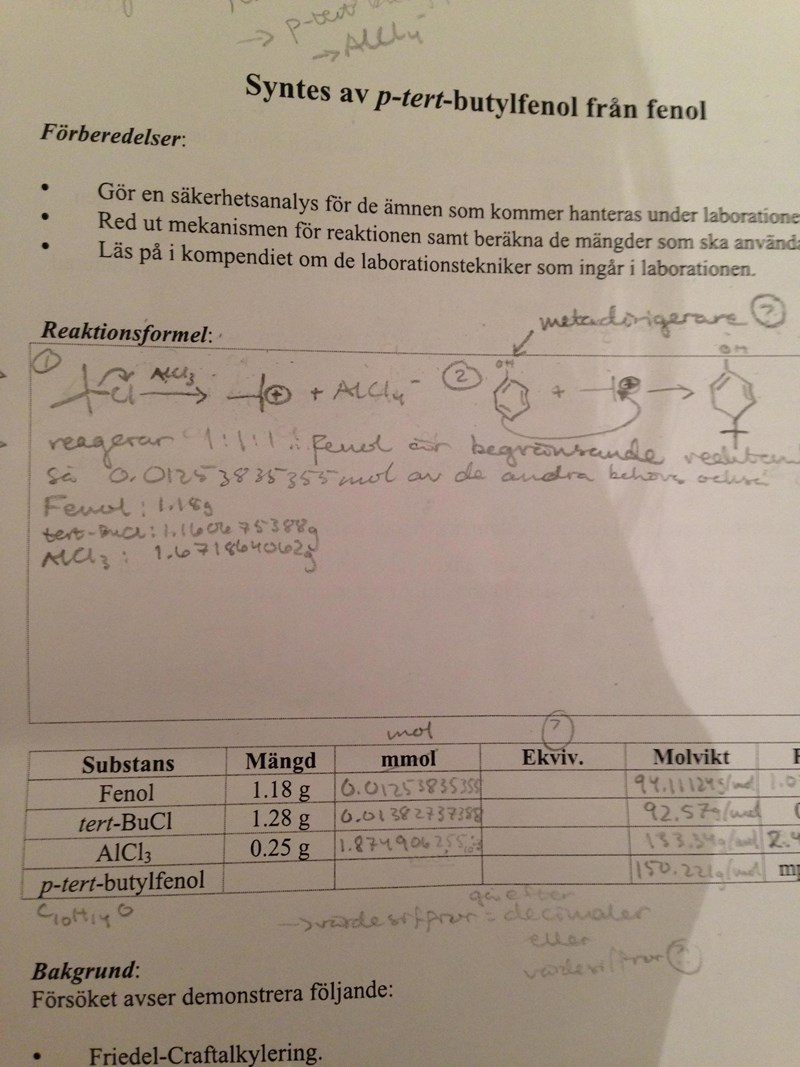 → p-tert
Syntes av p-tert-butylfenol från fenol
Förberedelser:
• Gör en säkerhetsanalys för de ämnen som kommer hanteras under laboratione
• Red ut mekanismen för reaktionen samt beräkna de mängder som ska använda
• Läs på i kompendiet om de laborationstekniker som ingår i laborationen.
metadirigerare ?
Reaktionsformel:
1 Cl AlCl3 → + + AlCl4- 2 OH + → OH
reagerar 1:1:1 : Fenol är begränsande
så 0.01253835355 mol av de andra behövs också
Fenol : 1.18g
tert-BuCl : 1.160675388g
AlCl3 : 1.671864062g
mol ?
Substans Mängd mmol Ekviv. Molvikt
Fenol 1.18 g 0.01253835355 94.1112 g/mol 1.0
tert-BuCl 1.28 g 0.01382737388 92.57g/mol
AlCl3 0.25 g 133.34g/mol 2.4
p-tert-butylfenol 150.221g/mol mp
C10H14O gå efter
→ värdesiffror = decimaler
eller
värdesiffror ?
Bakgrund:
Försöket avser demonstrera följande:
• Friedel-Craftalkylering.